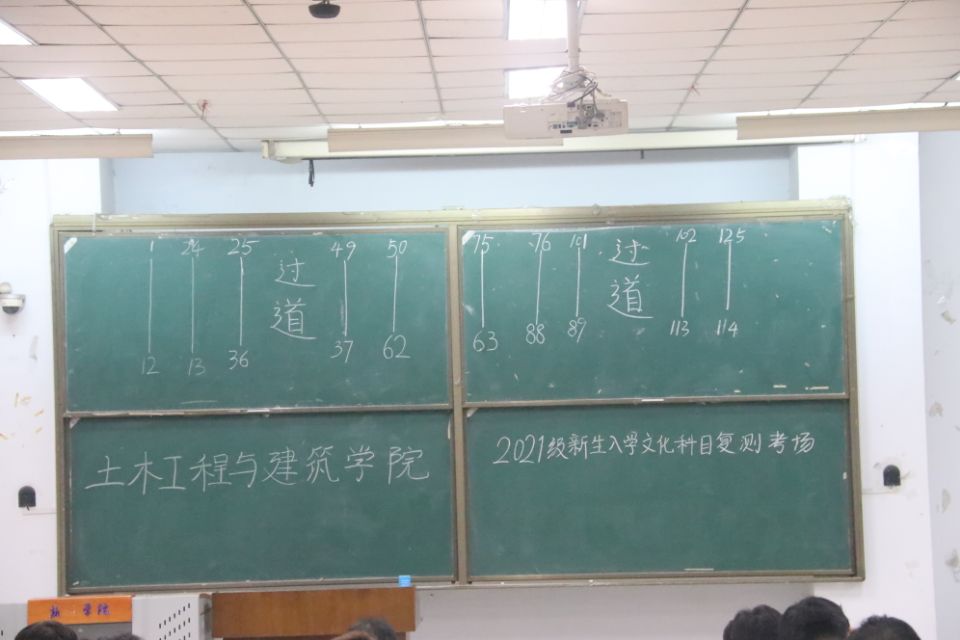 1 24 25 过道 49 50
12 13 36 37 62
75 76 101 过道 102 125
63 88 89 113 114
土木工程与建筑学院
2021级新生入学文化科目复测考场
学院